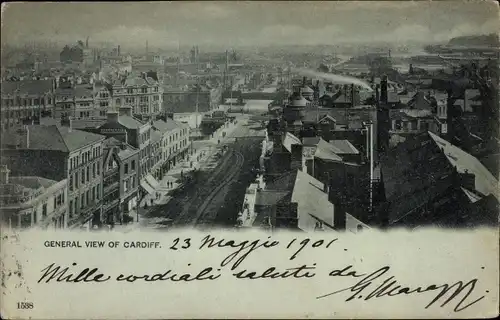 GENERAL VIEW OF CARDIFF. 23 Maggio 1901
Mille cordiali saluti da
1538